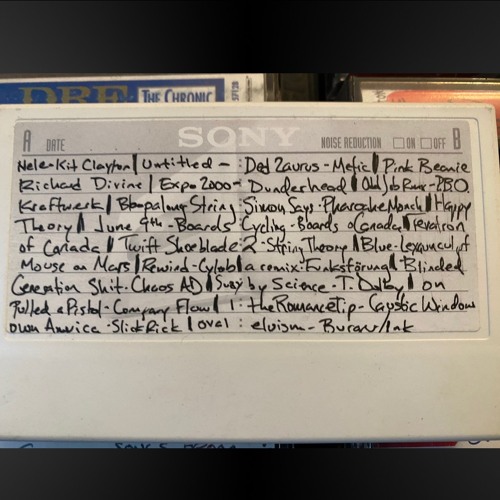 DRE THE CHRONIC
A DATE SONY NOISE REDUCTION ON OFF B
Nele-Kit Clayton | Untitled - : Ded Zaurus - Metic | Pink Beanie
Richard Divine | Expo 2000 - Dunderhead | Odd Job Band - PBO
Kraftwerk | Boopalong String : Simon Says - Pharoahe Monch | Happy
Theory | June 9th - Boards Cycling - Boards o Canada |
of Canada | Twift Shoeblade : 2 - String Theory | Blue -
Mouse on Mars | Rewind - Cylob | a remix - Funkstörung | Blinded
Generation Shit - Chaos AD | Suzi by Science - T. Dolby | on
Pulled a Pistol - Company Flow | 1 : the Romance Tip - Caustic Window
own America - Slick Rick | oval : eluism - Burow/Ink